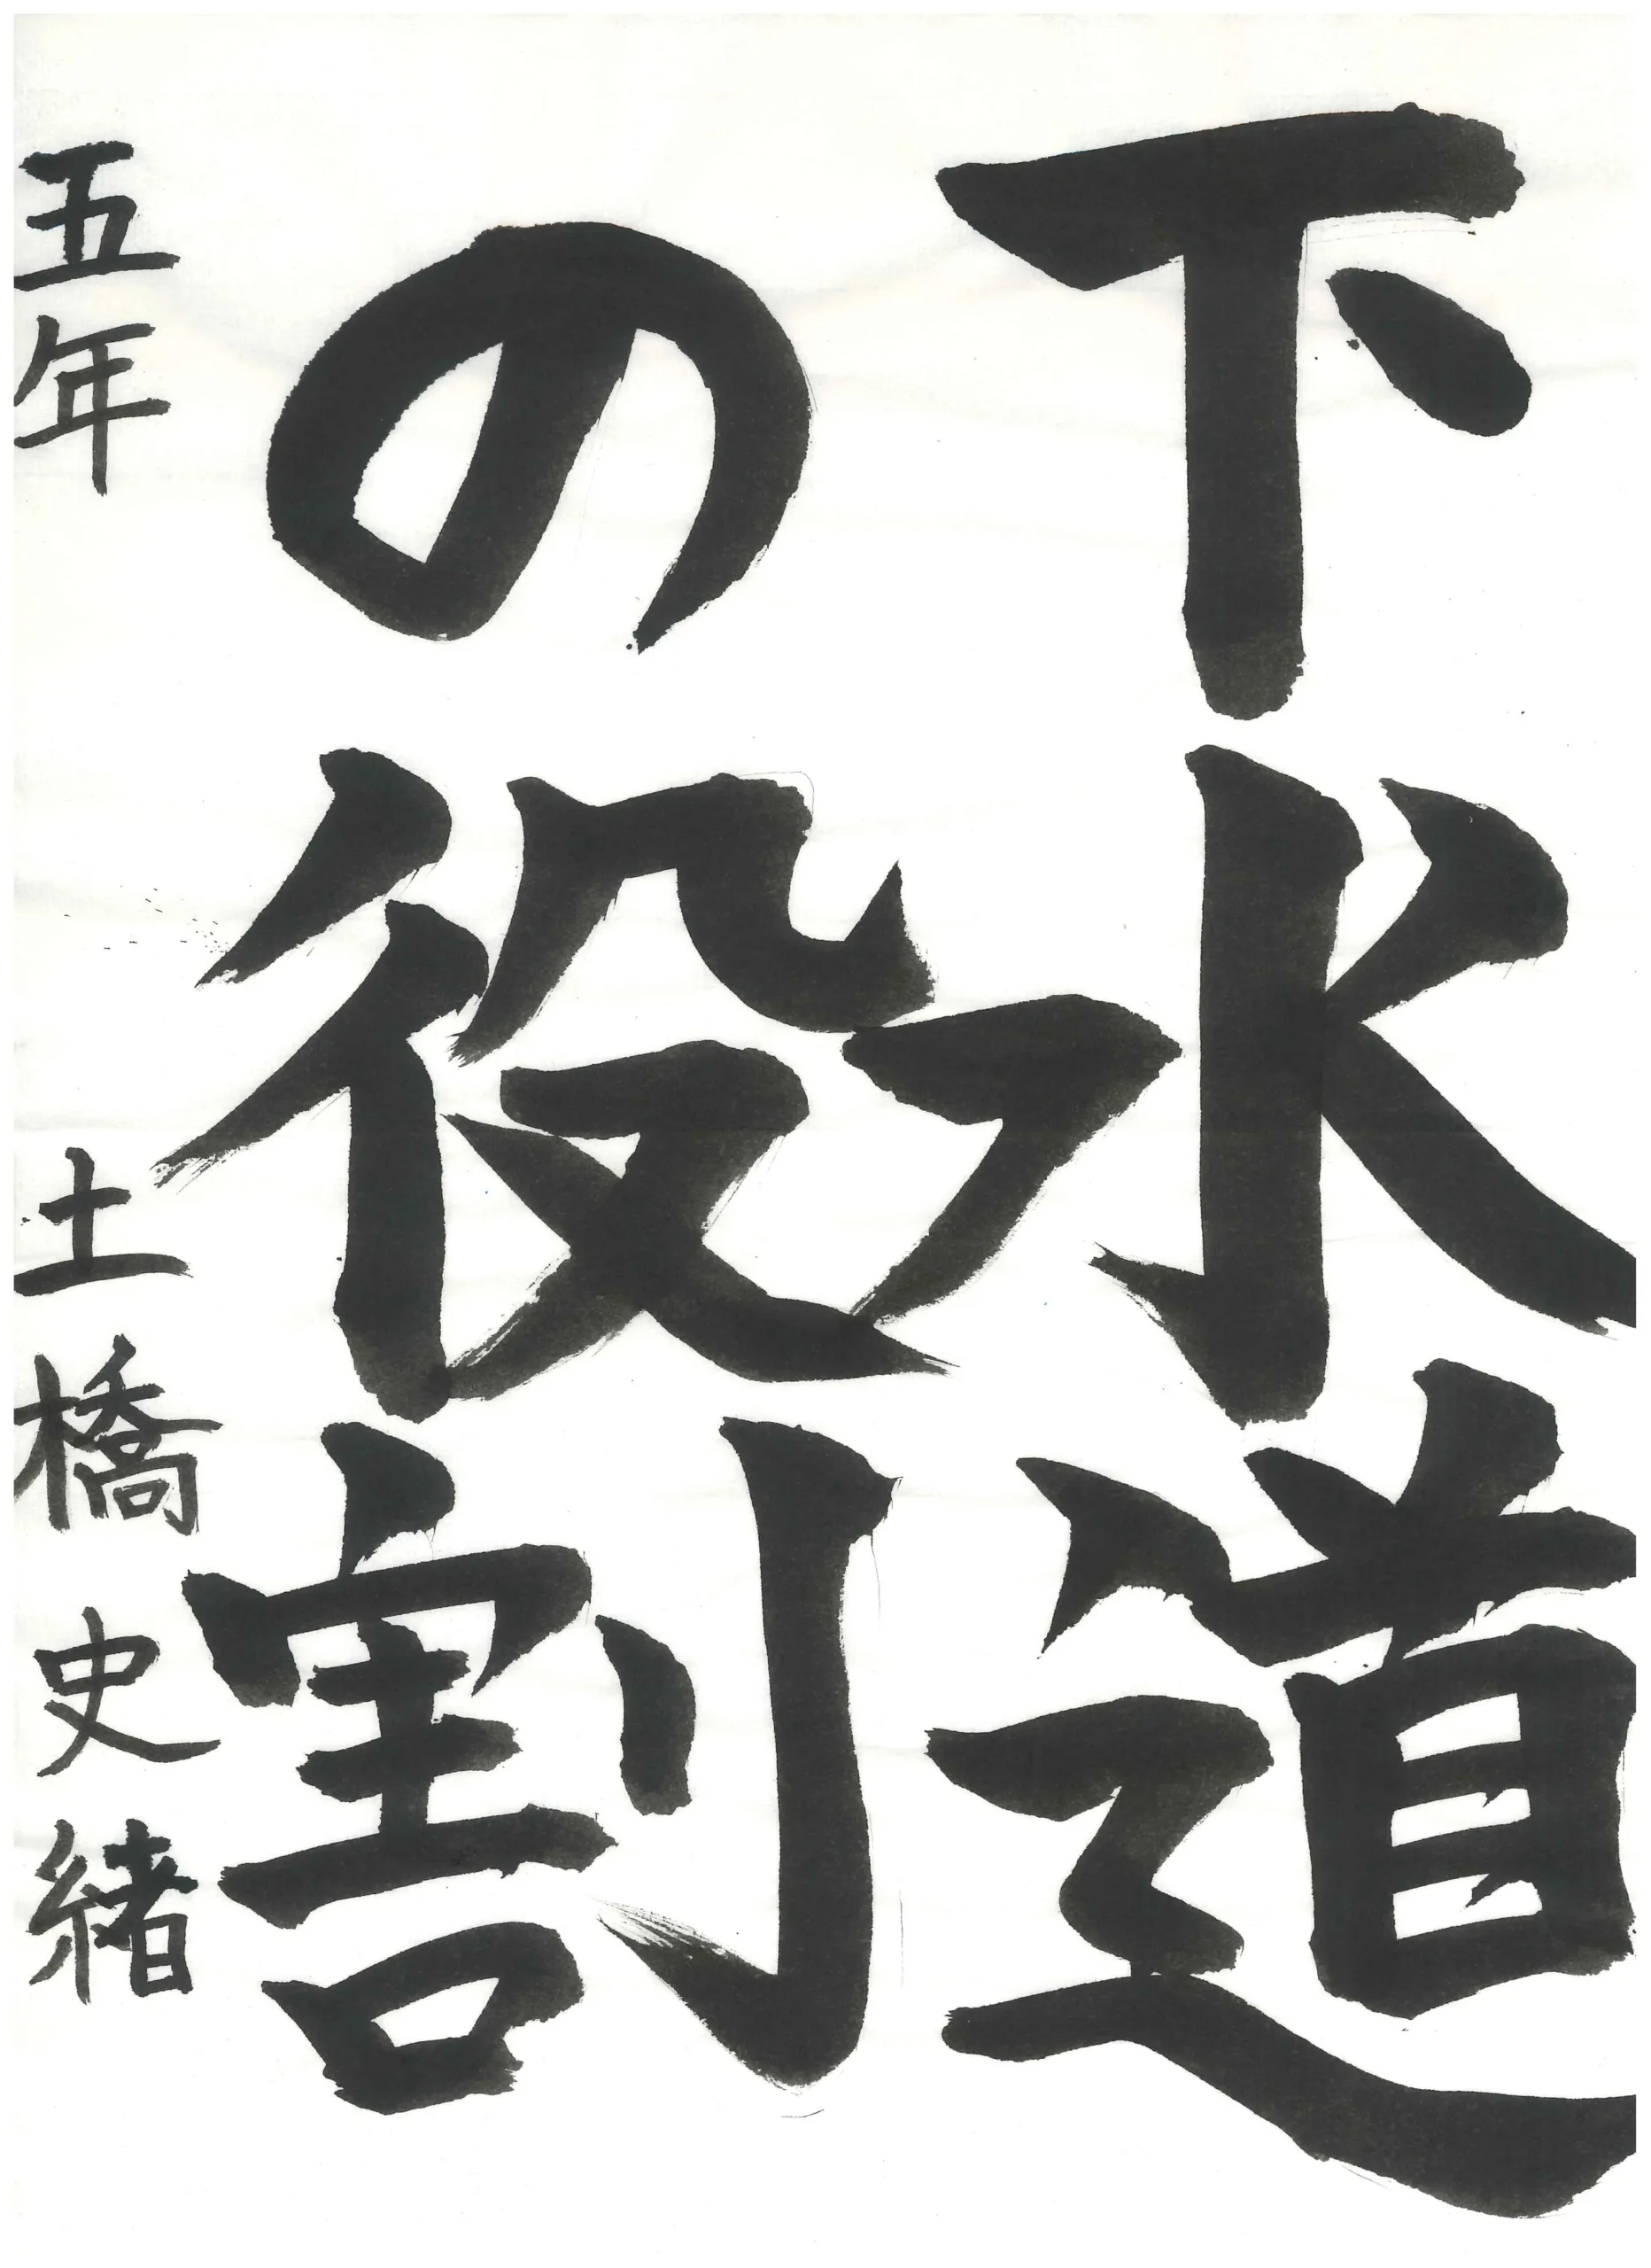 下水道
の役割
五年 土橋史緒